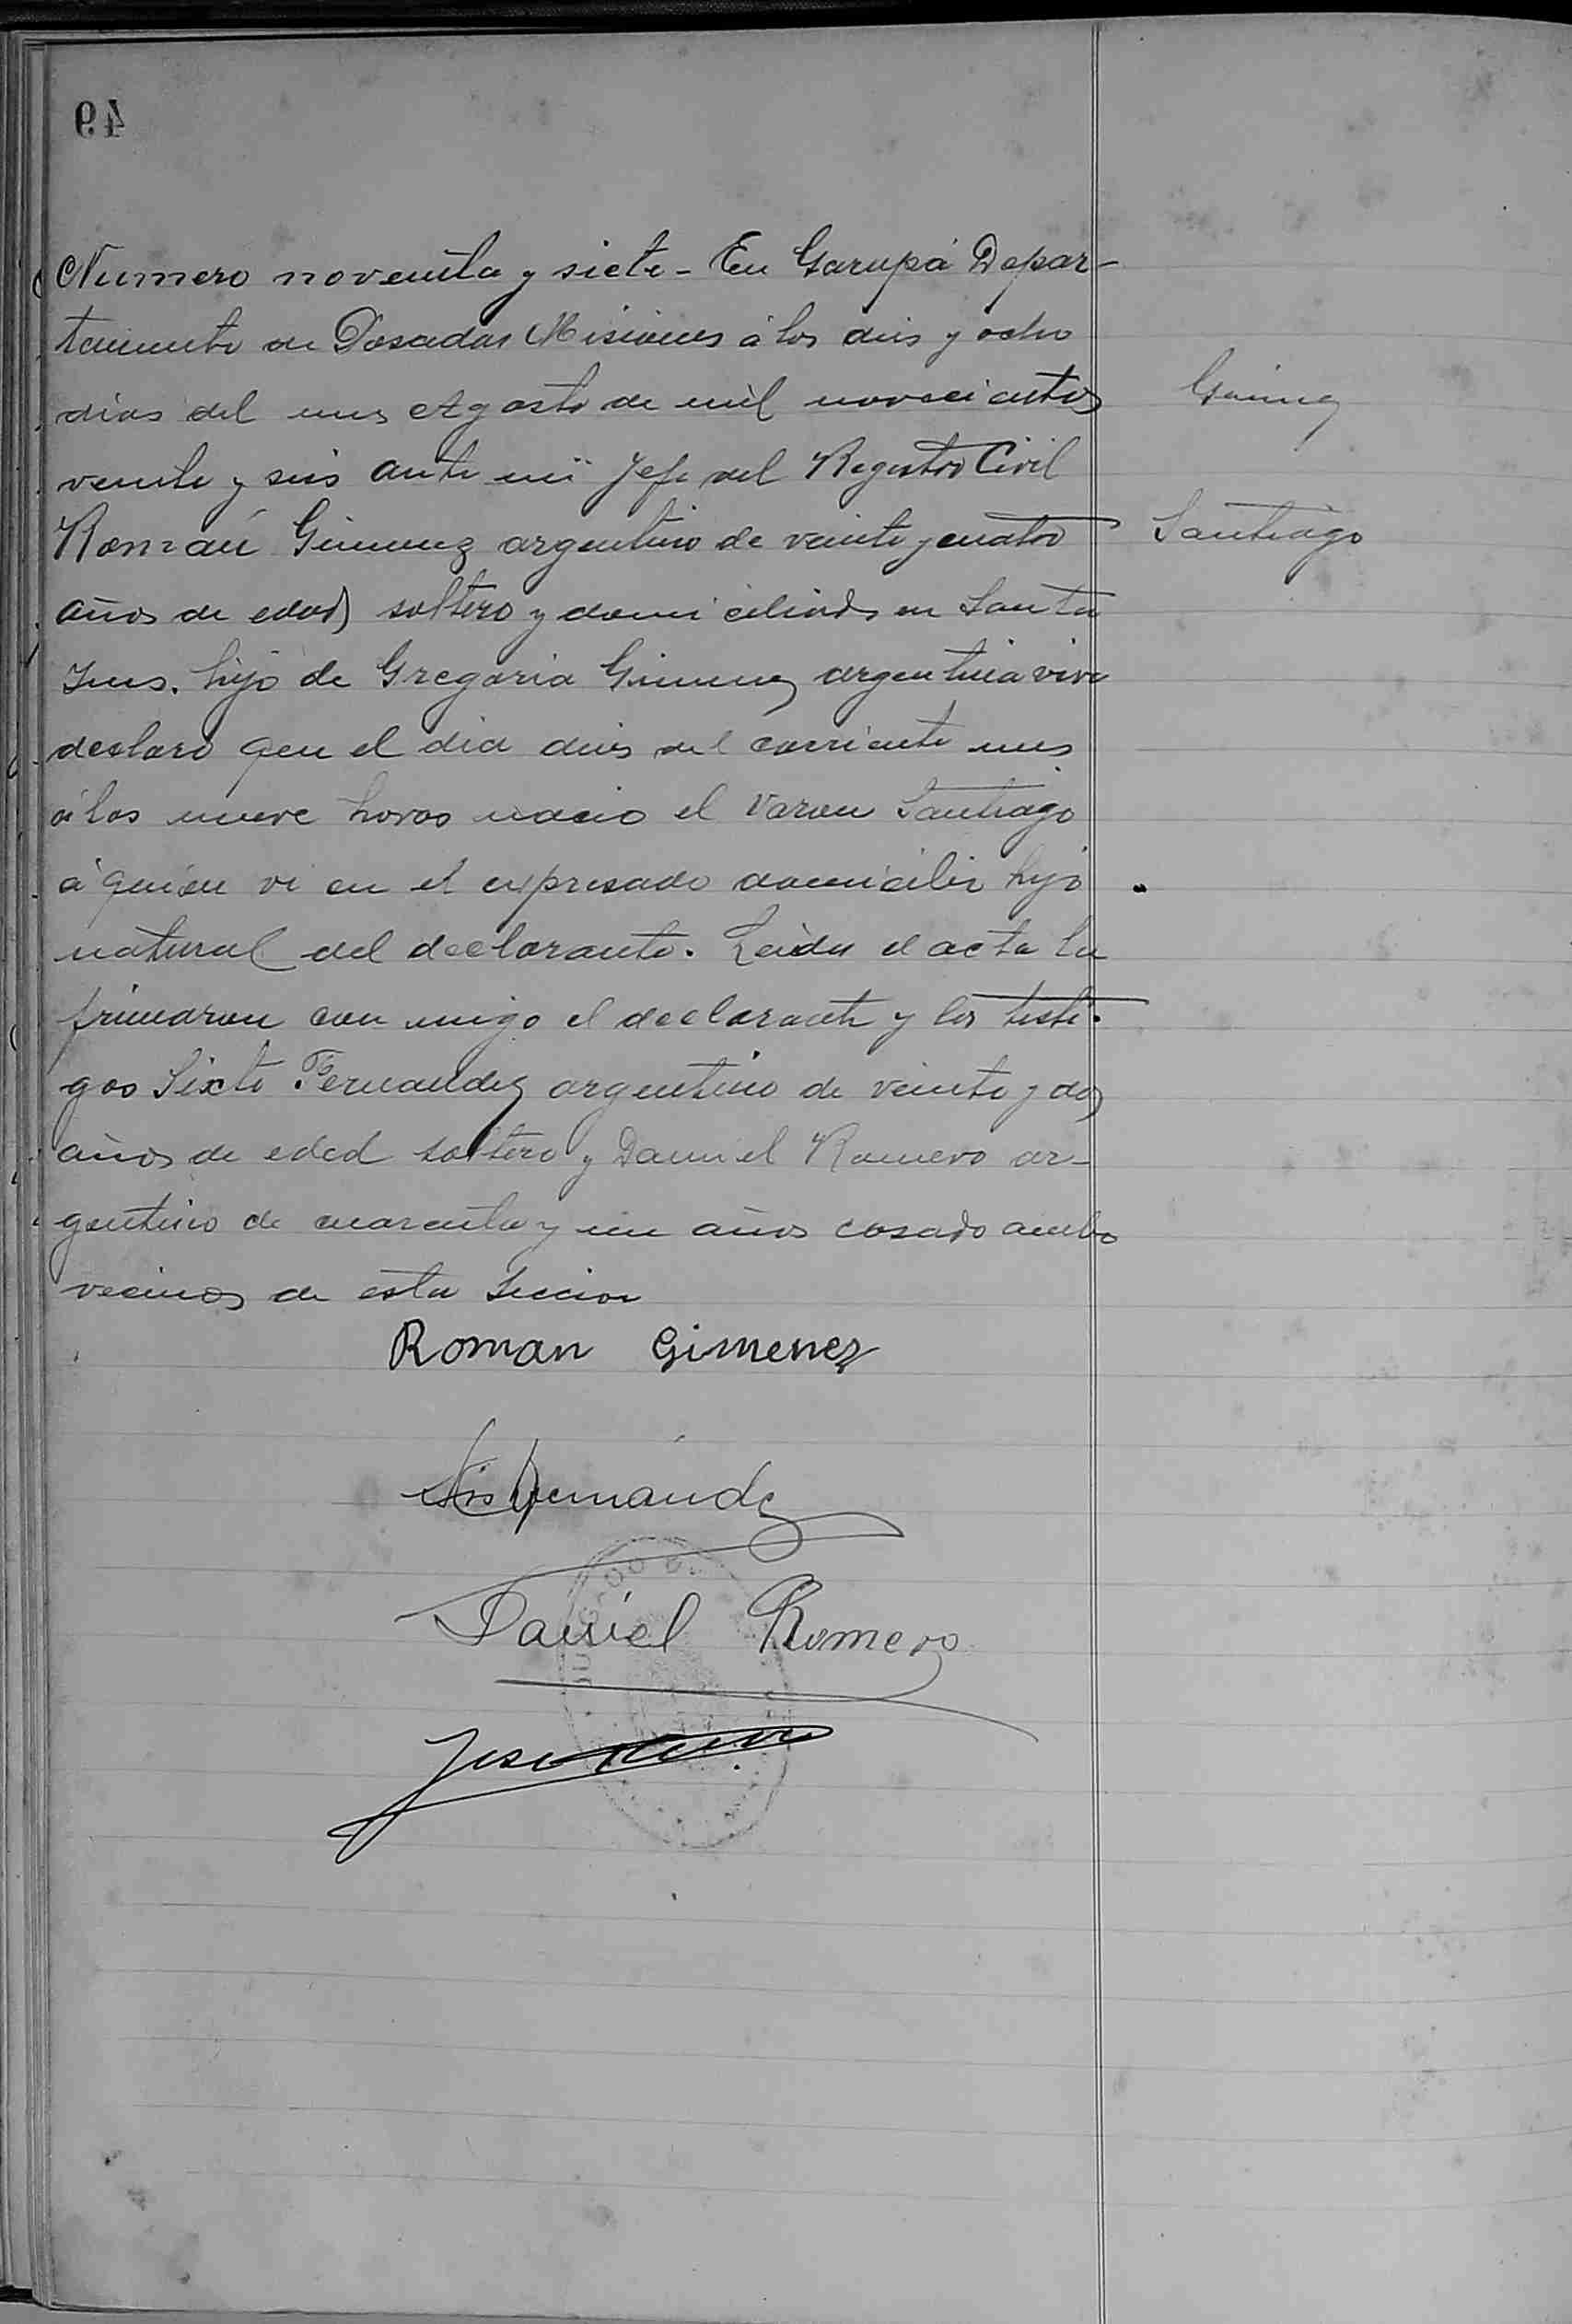 49
Numero noventa y siete - En Garupá Depar-
tamento de Posadas Misiones á los dies y ocho
dias del mes Agosto de mil novecientos
veinte y seis ante mi Jefe del Registro Civil
Román Gimenez argentino de veinte y cuatro
años de edad soltero y domiciliado en Santa
Ines. hijo de Gregoria Gimenez argentina vive
declaro que el dia dies del corriente mes
á las nueve horas nacio el varon Santiago
á quien vi en el expresado domicilio hijo
natural del declarante. Leida el acta la
frimaron con migo el declarante y los testi-
gos Sixto Fernandez argentino de veinte y dos
años de eded soltero y Daniel Romero ar-
gentino de cuarenta y un años casado ambo
vecinos de esta seccion
Gimez
Santiago
Roman Gimenez
Fernández
Daniel Romero
Jose